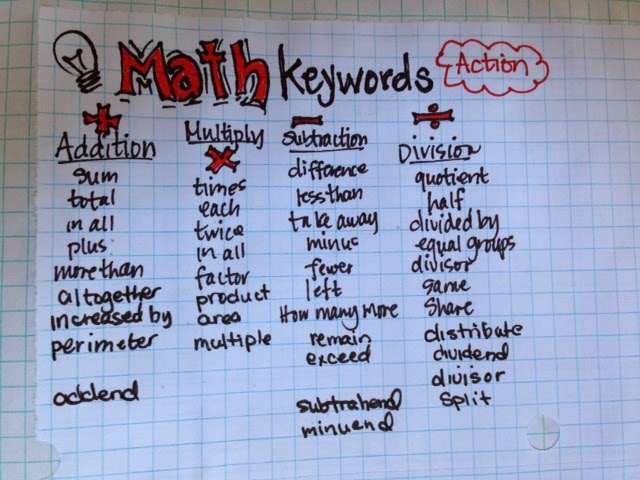 Math Keywords
Action
+
Addition
sum
total
in all
plus
more than
altogether
increased by
perimeter
addend
Multiply
×
times
each
twice
in all
factor
product
area
multiple
−
Subtraction
difference
less than
take away
minus
fewer
left
How many more
remain
exceed
subtrahend
minuend
÷
Division
quotient
half
divided by
equal groups
divisor
same
Share
distribute
dividend
divisor
Split